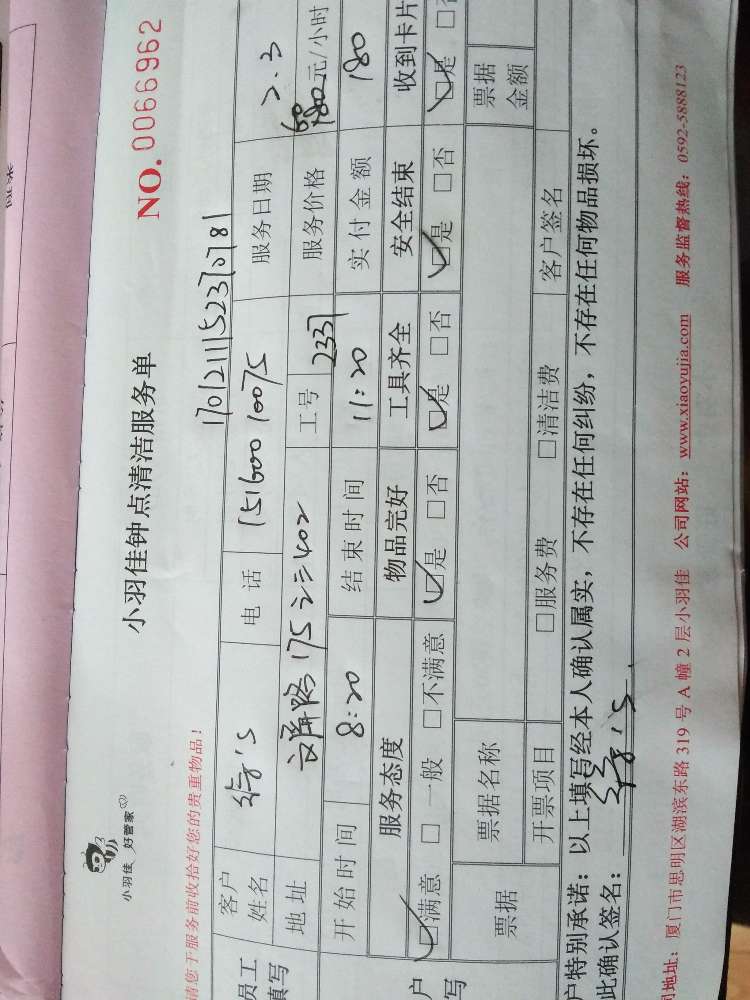 小羽佳 好管家
小羽佳钟点清洁服务单
NO. 0066962
请您于服务前收拾好您的贵重物品！
1701211152370781
员工
填写
客户
姓名
电 话 15160010075
服务日期 2.3
地 址 175 402
工号 2337
服务价格 60 180元/小时
开 始 时 间 8:20
结 束 时 间 11:20
实 付 金 额 180
户
写
服务态度
物品完好
工具齐全
安全结束
收到卡片
☑满意 □ 一般 □不满意
☑是 □否
☑是 □否
☑是 □否
☑是 □否
票据
票据名称
票据
金额
开票项目
□服务费
□清洁费
客户签名
户特别承诺：以上填写经本人确认属实，不存在任何纠纷，不存在任何物品损坏。
此确认签名：
地址：厦门市思明区湖滨东路 319 号 A 幢 2 层小羽佳 公司网站：www.xiaoyujia.com 服务监督热线：0592-5888123